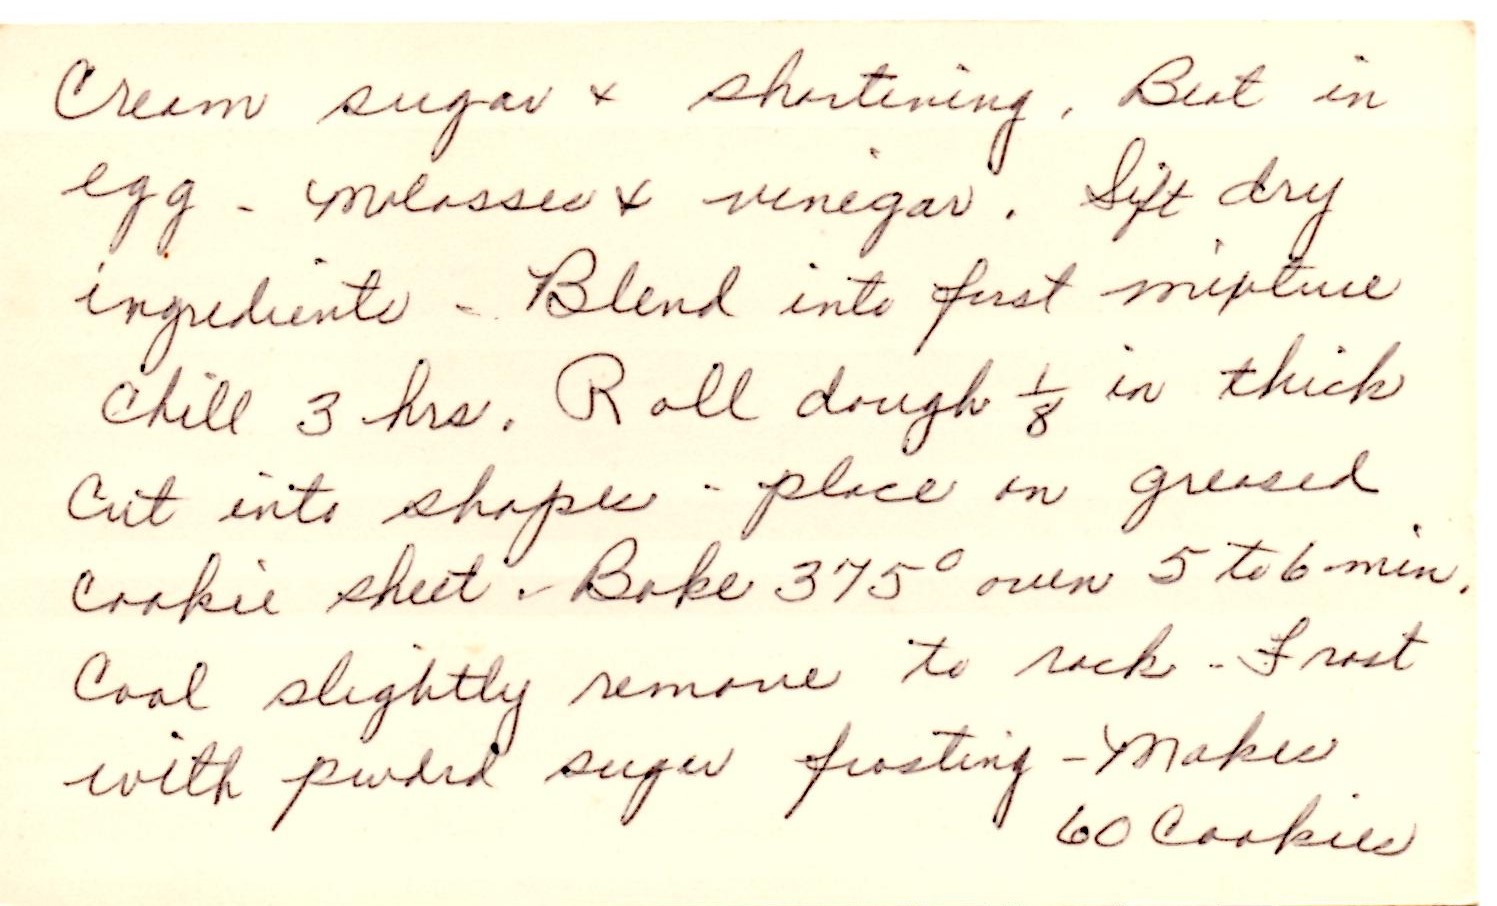 Cream sugar & shortening. Beat in
egg - molasses & vinegar. Sift dry
ingredients - Blend into first mixture
Chill 3 hrs. Roll dough 1/8 in thick
Cut into shapes - place on greased
Cookie sheet. - Bake 375° oven 5 to 6 min.
Cool slightly remove to rack - Frost
with pwdrd sugar frosting - Makes
60 Cookies